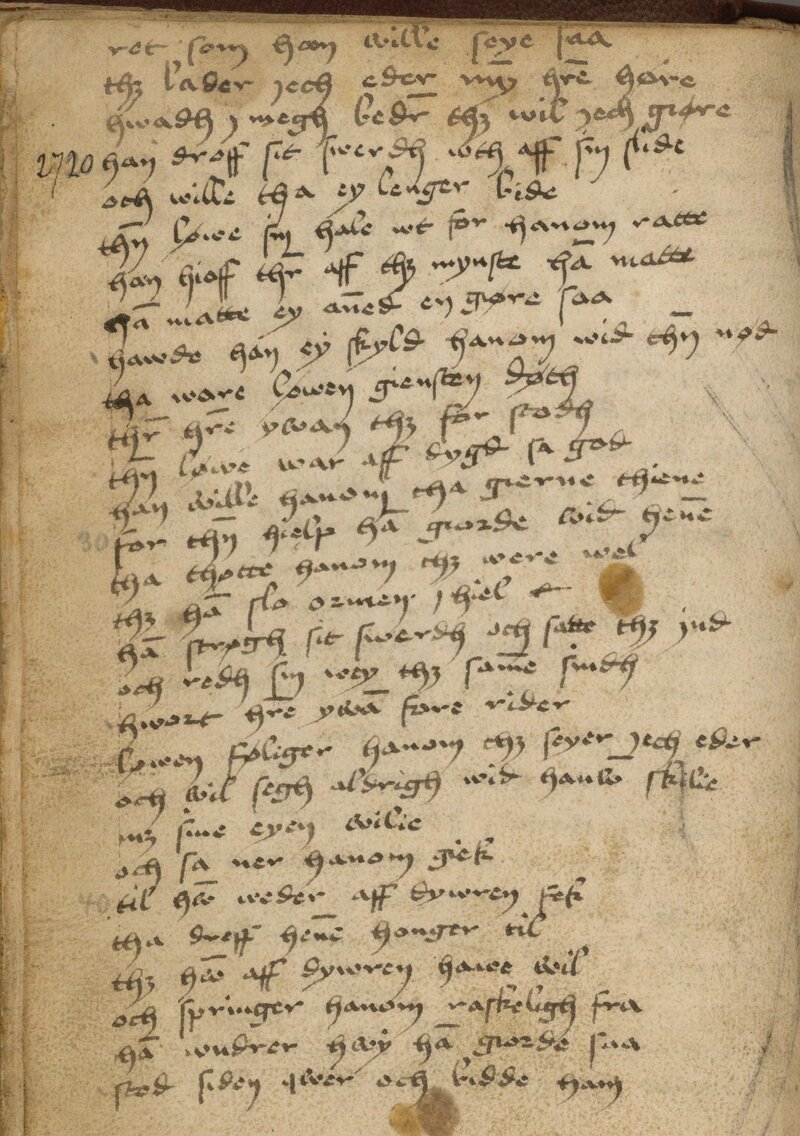 ret som han wille seye saa
thz lader jech eder mz hrē høre
hwadh j megh bedr̄ thz wil jech giøre
2720 han droff sit swerdh wth aff sin slide
och wille tha ey lenger bide
thn̄ løwe sin hale wt for hanom ratte
han hioff thr̄ aff thz mynste hā matte
hā matte ey an̄ed en giøre saa
hawde han ey skyld hanom wid thn̄ nød
tha ware løwen giensten døth
thr̄ hrē ywan thz for stodh
thn̄ løwe war aff dygd sa god
han wille hanom tha gierne thiene
30 for thn̄ hielp hā giorde wid hen̄e
tha thotte hanom thz were wel
thz hā slo ormen j hiel
hā strøgh sit swerdh och satte thz jnd
och redh sin wey thz sam̄e sindh
hwort hrē ywā fore rider
løwen følger hanom thz seyer jech eder
och wil segh aldrigh wid hanū skilie
mz sine eyen wilie
och sa ner hanom giek
40 til hū weder aff dywren fek
tha dreff hen̄e honger til
thz hū aff dywren hawe wil
och springer hanom raskeligh fra
hā wndrer hwy hā giorde saa
stod siden qwer och bidde ham